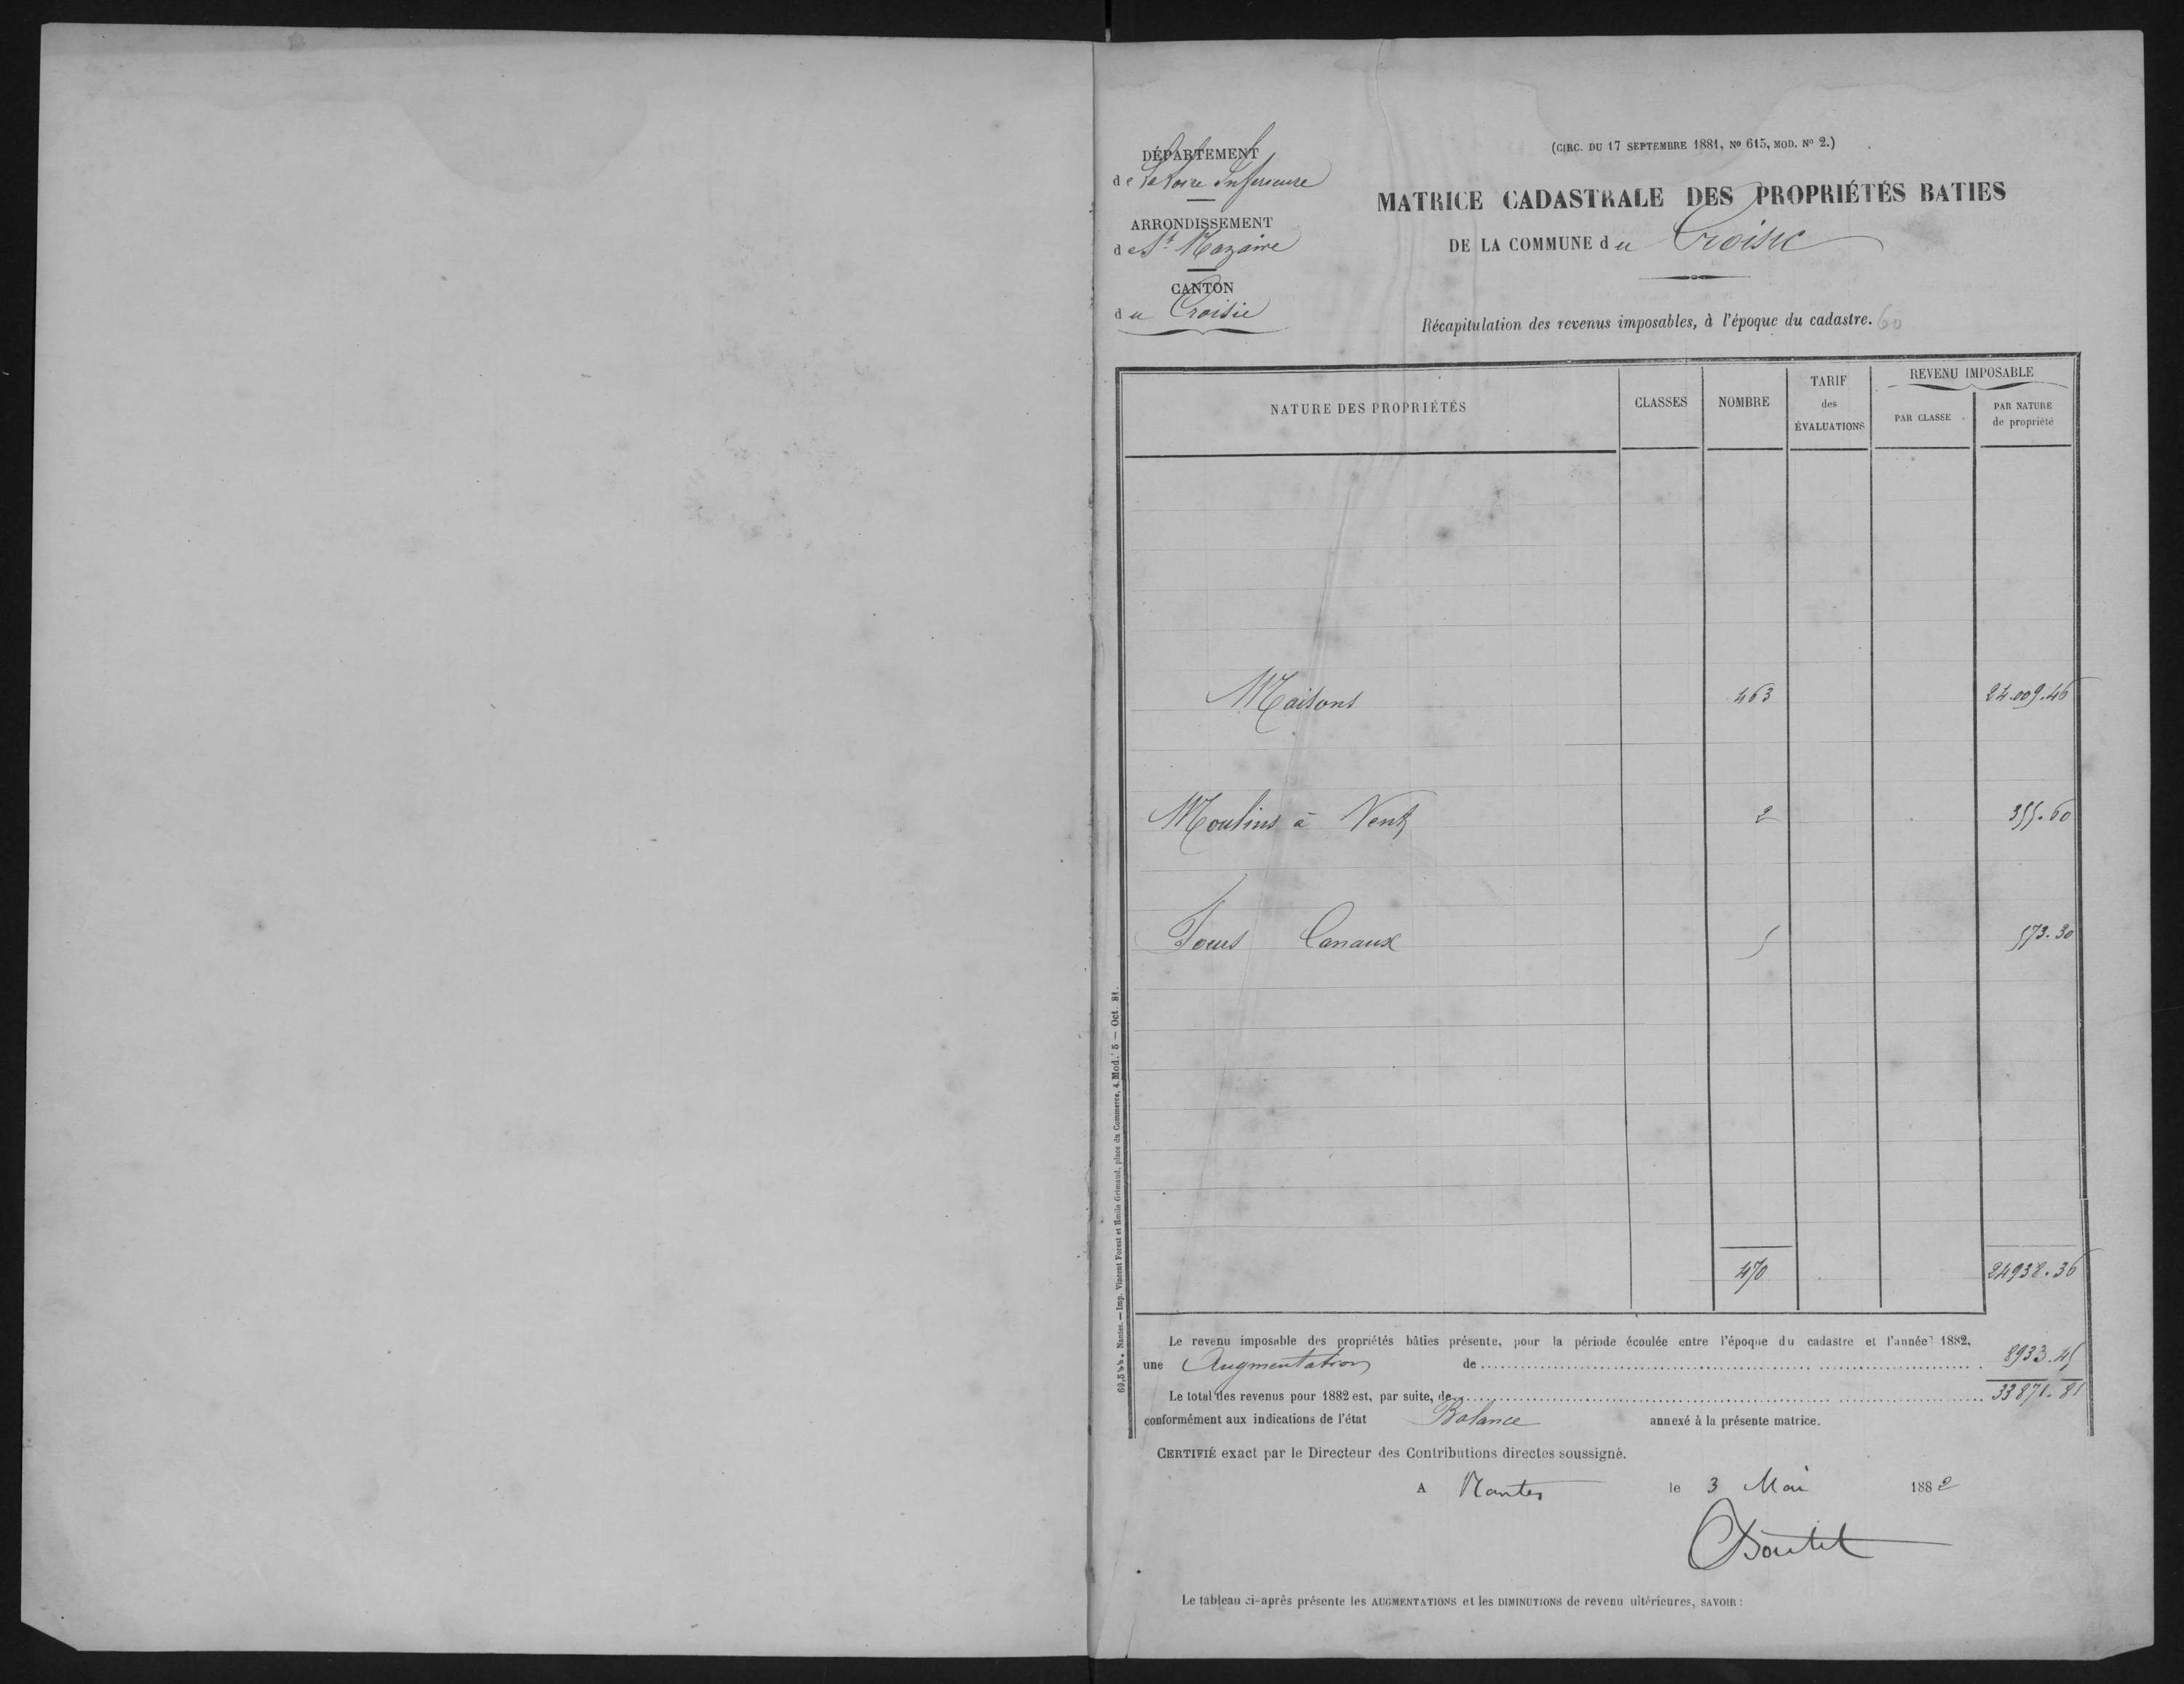 DÉPARTEMENT
de la Loire Inférieure
ARRONDISSEMENT
de St Nazaire
CANTON
du Croisic
(CIRC. DU 17 SEPTEMBRE 1881, No 615, MOD. No 2.)
MATRICE CADASTRALE DES PROPRIÉTÉS BATIES
DE LA COMMUNE du Croisic
Récapitulation des revenus imposables, à l'époque du cadastre. 60
NATURE DES PROPRIÉTÉS
CLASSES
NOMBRE
TARIF
des
ÉVALUATIONS
REVENU IMPOSABLE
PAR CLASSE
PAR NATURE
de propriété
Maisons 463 24.009.46
Moulins à Vent 2 355.60
Fours Canaux 5 573.30
470 24938.36
Le revenu imposable des propriétés bâties présente, pour la période écoulée entre l'époque du cadastre et l'année 1882,
une Augmentation de 8933.45
Le total des revenus pour 1882 est, par suite, de 33871.81
conformément aux indications de l'état Balance annexé à la présente matrice.
CERTIFIÉ exact par le Directeur des Contributions directes soussigné.
A Nantes le 3 Mai 1882
Le tableau ci-après présente les AUGMENTATIONS et les DIMINUTIONS de revenu ultérieures, SAVOIR :
Nantes. — Imp. Vincent Forest et Emile Grimaud, place du Commerce, 4. Mod. 5 — Oct. 81.